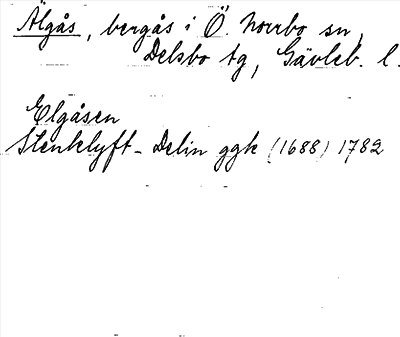 Älgås, bergås i Ö. Norrbo sn,
Delsbo tg, Gävleb. l.
Elgåsen
Stenklyft - Delin ggk (1688) 1782